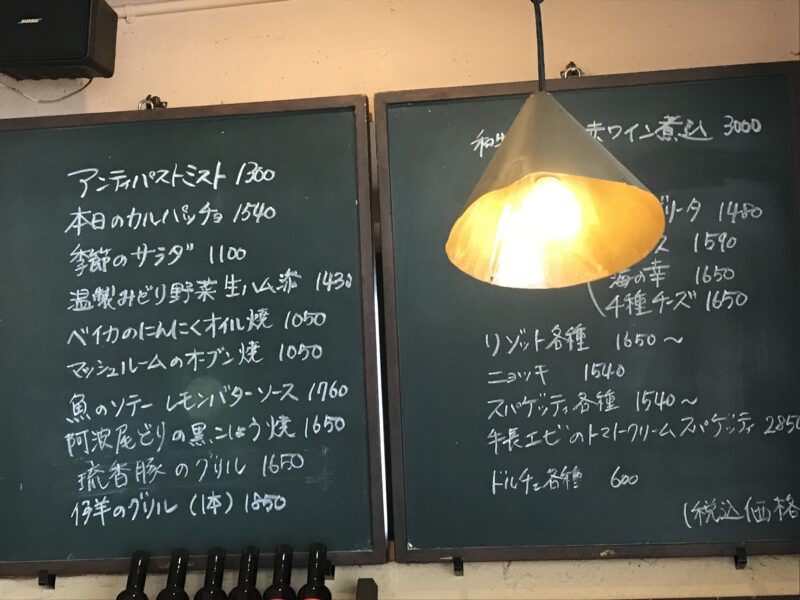 BOSE
アンティパストミスト 1300
本日のカルパッチョ 1540
季節のサラダ 1100
温製みどり野菜 生ハム添 1430
ベイカのにんにくオイル焼 1050
マッシュルームのオーブン焼 1050
魚のソテー レモンバターソース 1760
阿波尾どりの黒こしょう焼 1650
琉香豚のグリル 1650
仔羊のグリル (1本) 1850
赤ワイン煮込 3000
リータ 1480
ス 1590
海の幸 1650
4種チーズ 1650
リゾット各種 1650〜
ニョッキ 1540
スパゲッティ各種 1540〜
手長エビのトマトクリームスパゲッティ 2850
ドルチェ各種 600
(税込価格